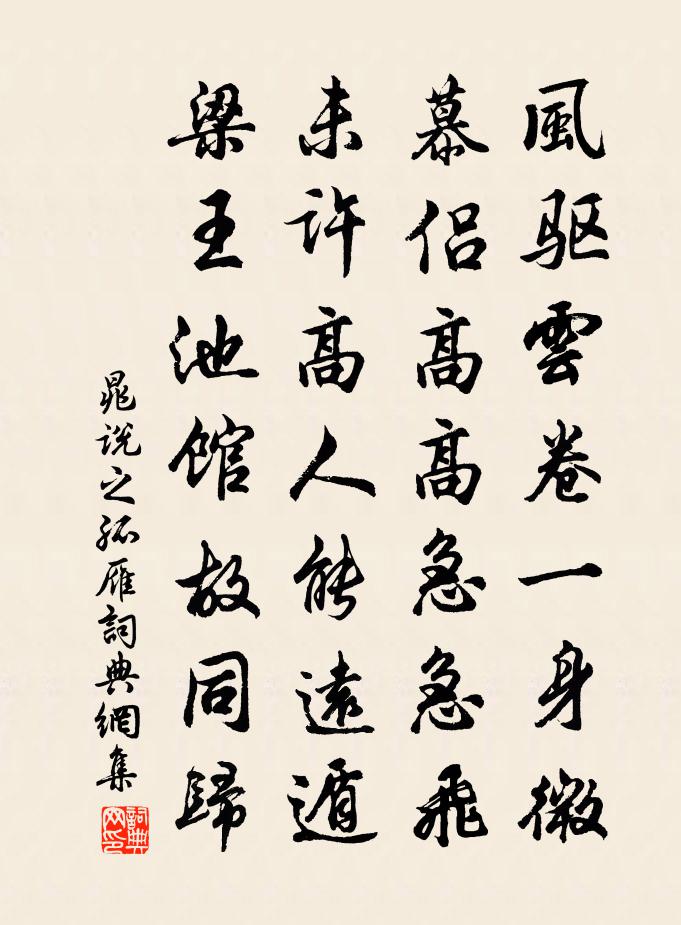 風驱雲卷一身微
慕侣高高急急飛
未许高人能遠遁
梁王池馆故同歸
晁说之孤雁詞典網集
詞典网印